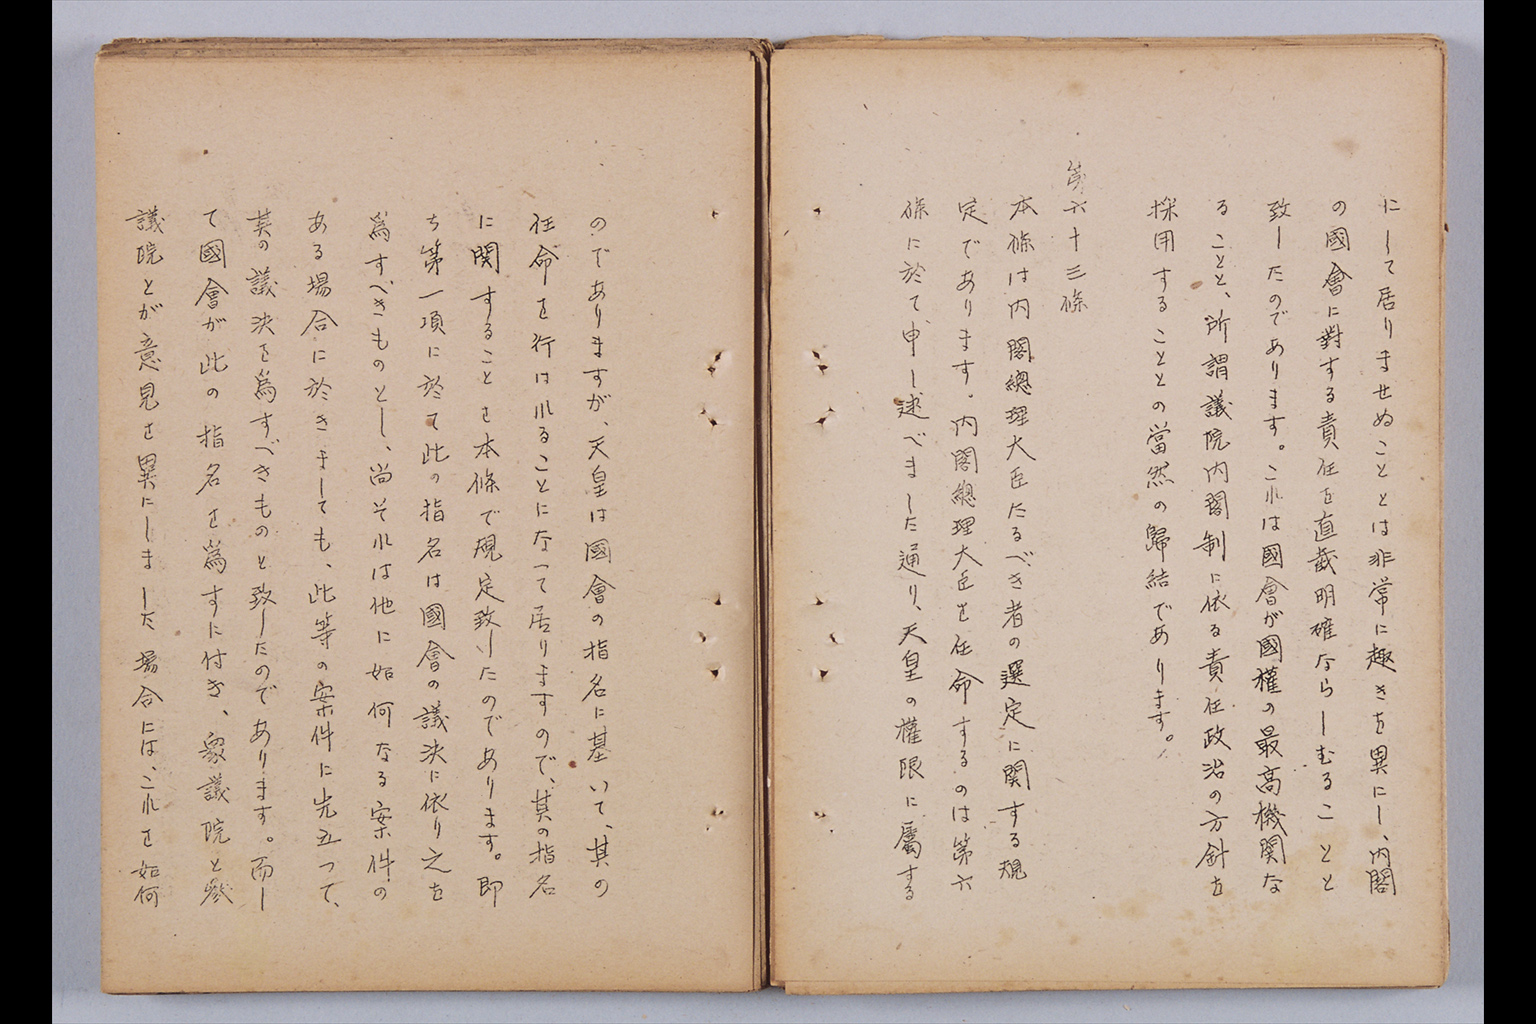 にして居りませぬこととは非常に趣きを異にし、内閣
の國會に對する責任を直截明確ならしむることと
致したのであります。これは國會が國權の最高機関な
ることと、所謂議院内閣制に依る責任政治の方針を
採用することとの當然の歸結であります。
第六十三條
本條は内閣總理大臣たるべき者の選定に関する規
定であります。内閣總理大臣を任命するのは第六
條に於て申し述べました通り、天皇の權限に屬する
のでありますが、天皇は國會の指名に基いて、其の
任命を行はれることになって居りますので、其の指名
に関することを本條で規定致したのであります。即
ち第一項に於て此の指名は國會の議決に依り之を
爲すべきものとし、尚それは他に如何なる案件の
ある場合に於きましても、此等の案件に先立つて、
其の議決を爲すべきものと致したのであります。而し
て國會が此の指名を爲すに付き、衆議院と參
議院とが意見を異にしました場合には、これを如何